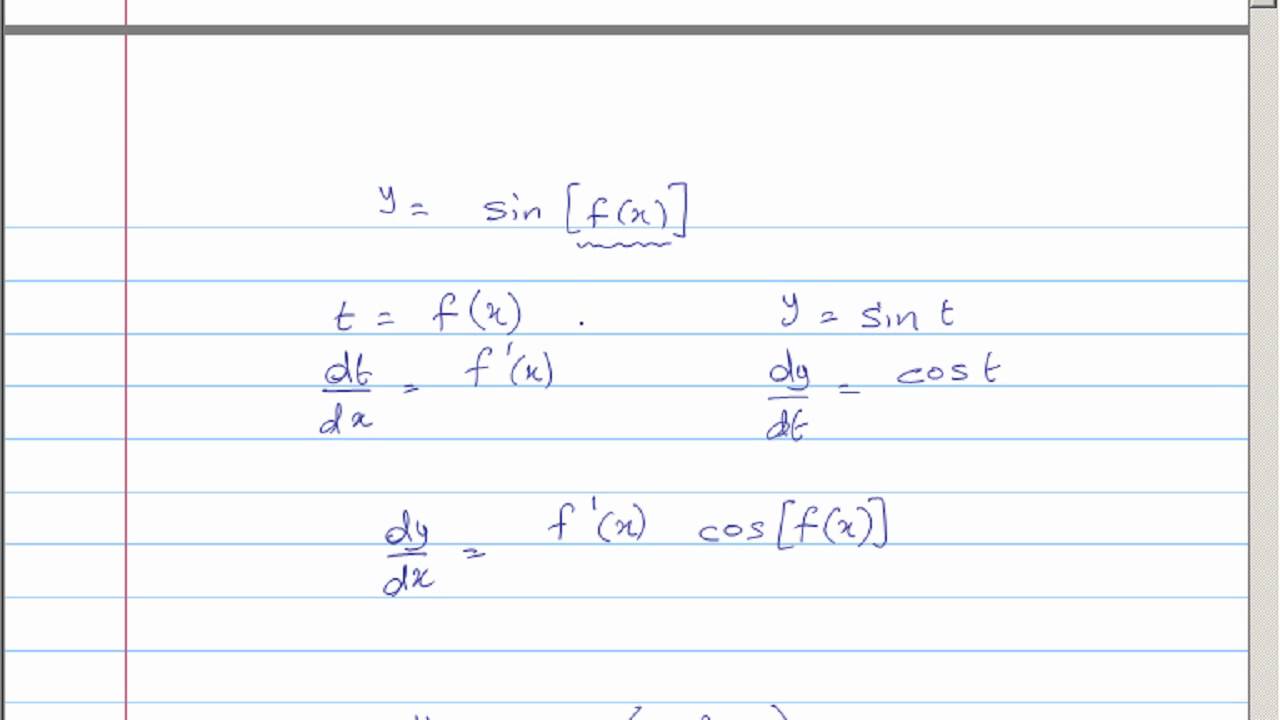 y = sin [f(x)]
t = f(x) . y = sin t
dt/dx = f'(x) dy/dt = cos t
dy/dx = f'(x) cos[f(x)]